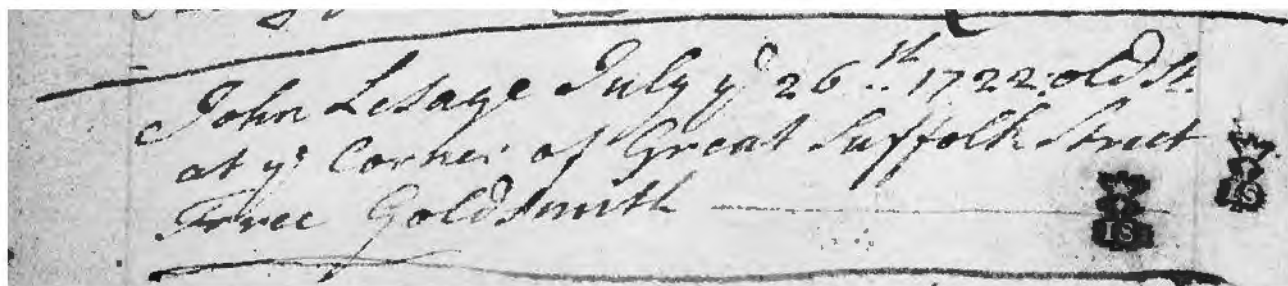 John LeSage July yᵉ 26th. 1722. old St.
at yᵉ Corner of Great Suffolk Street
Free Goldsmith
IS
IS